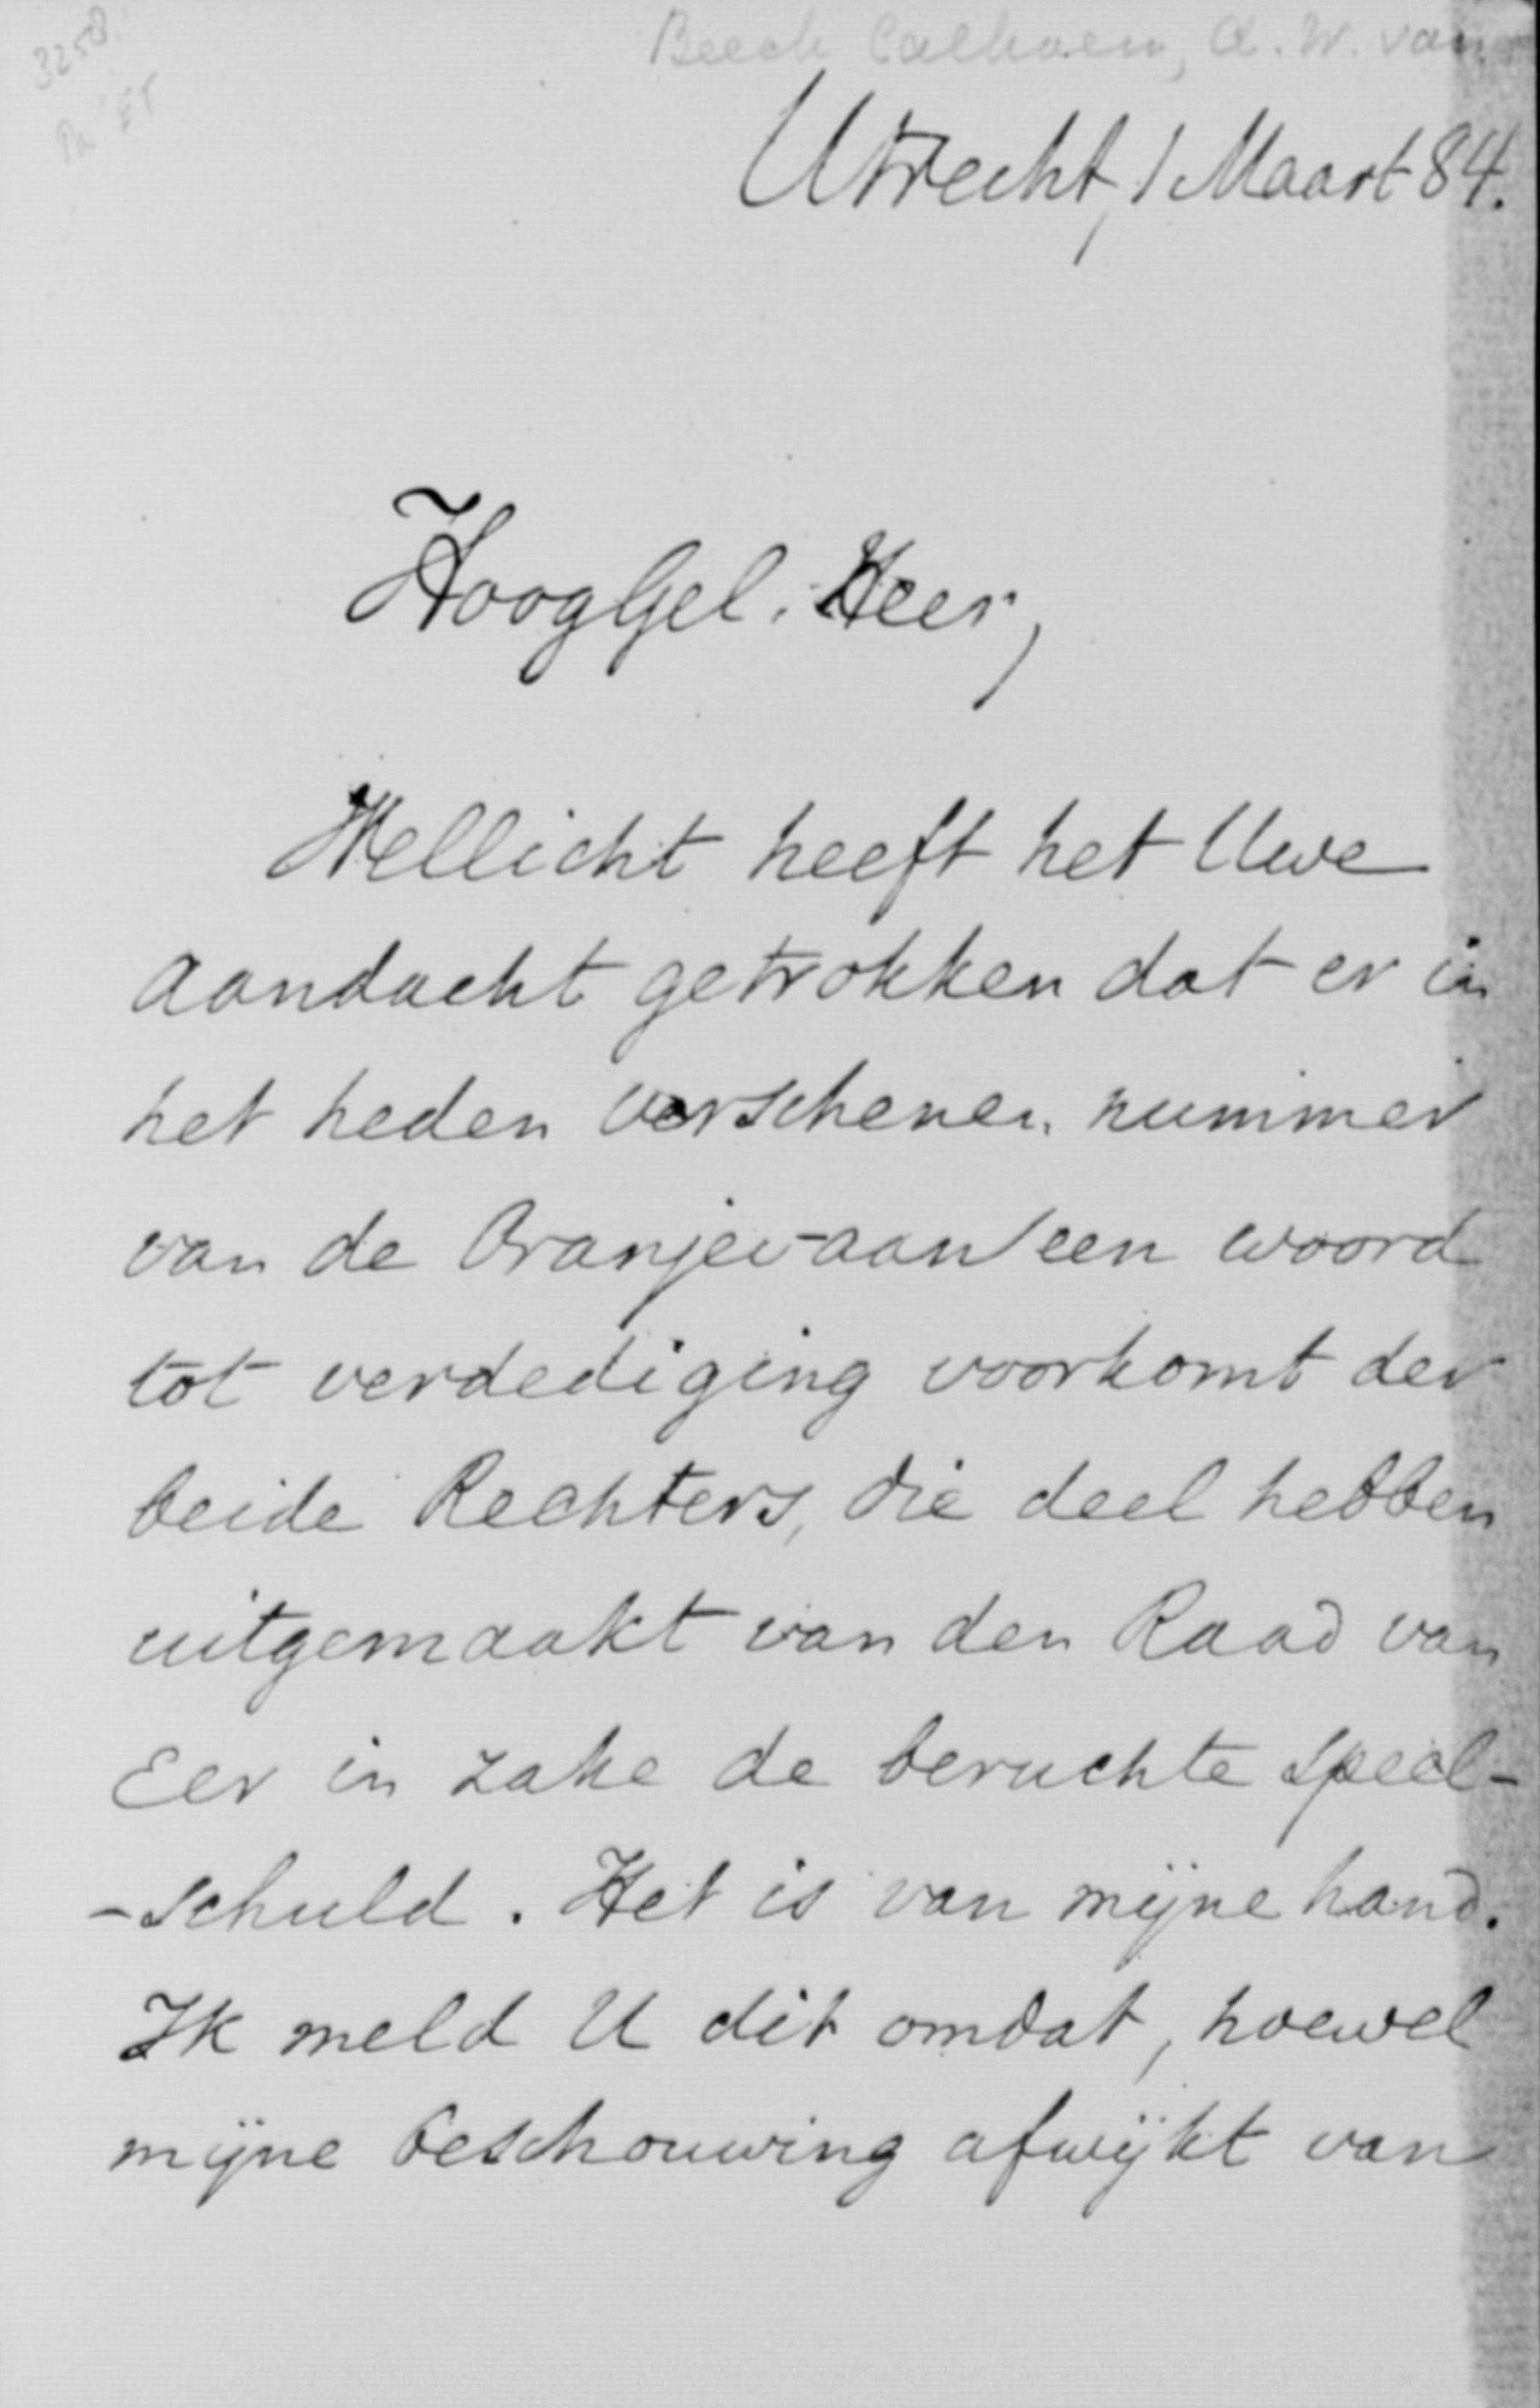 3258
Beeck Calkoen, A. W. van
Utrecht, 1 Maart 84.
HoogGel. Heer,
Wellicht heeft het Uwe
aandacht getrokken dat er in
het heden verschenen nummer
van de Oranjevaan een woord
tot verdediging voorkomt der
beide Rechters, die deel hebben
uitgemaakt van den Raad van
Eer in zake de beruchte speel-
-schuld. Het is van mijne hand.
Ik meld U dit omdat, hoewel
mijne beschouwing afwijkt van